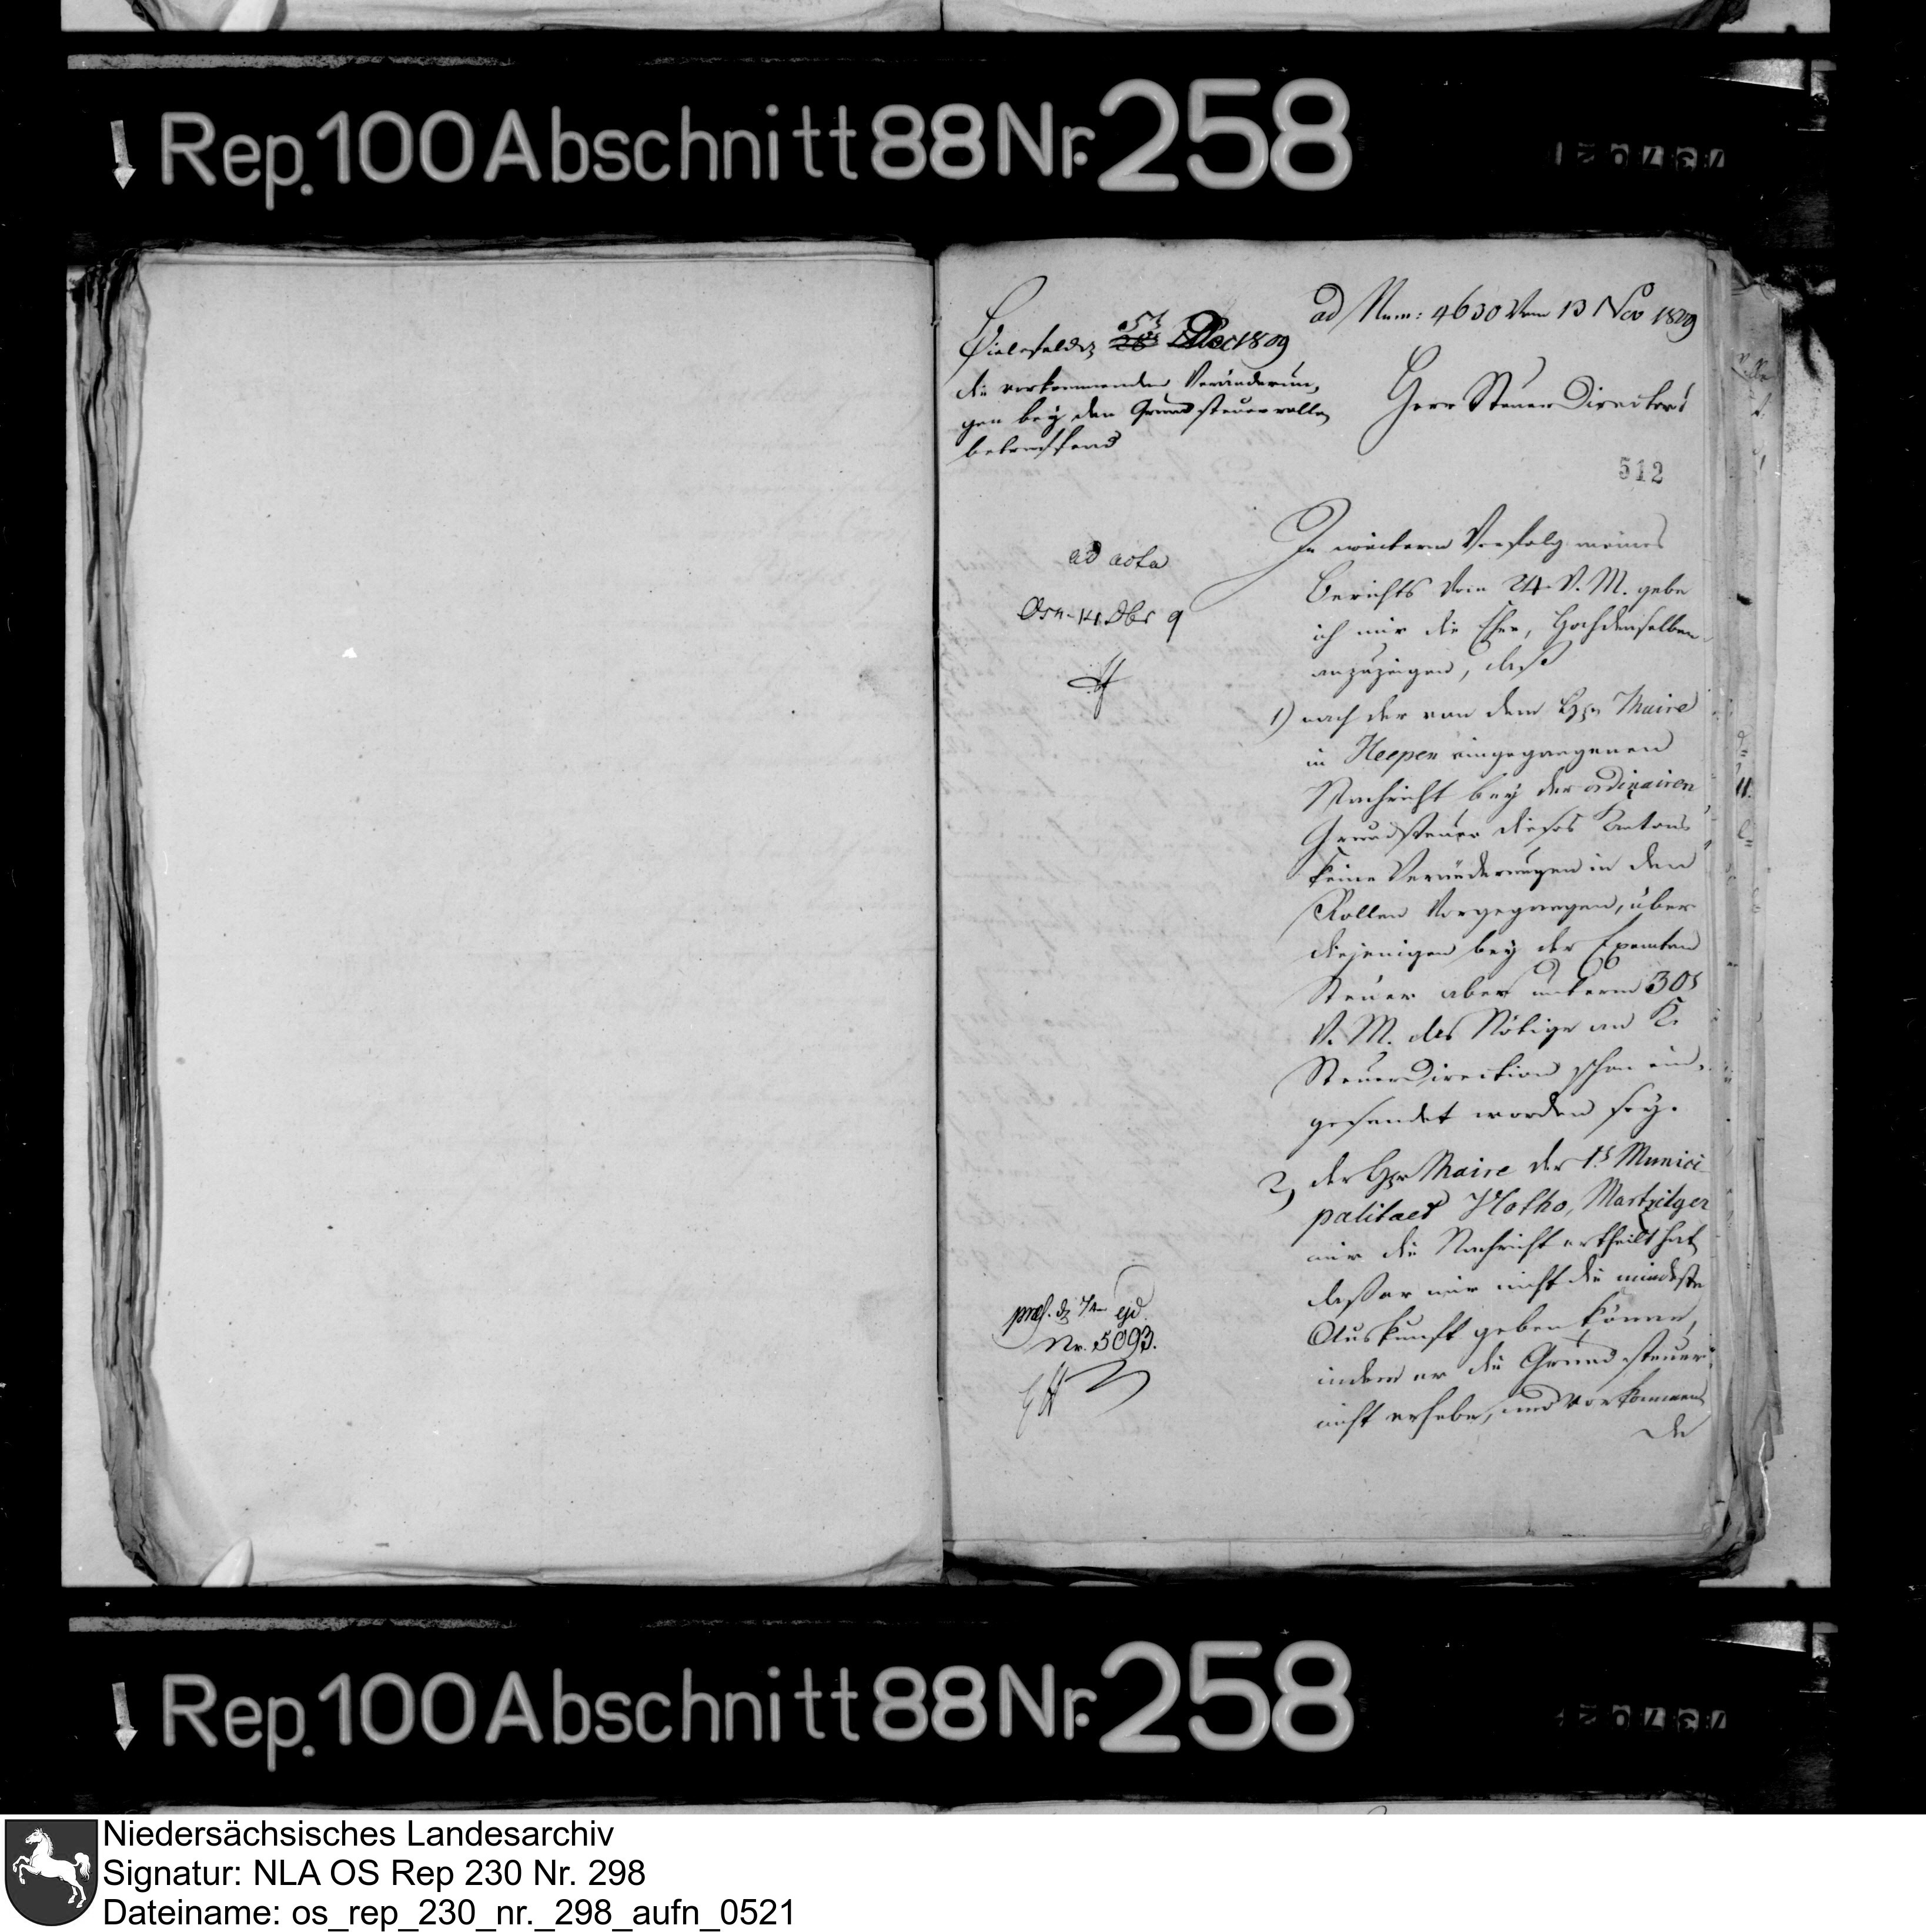 Rep. 100 Abschnitt 88 Nr. 258
ad Num: 4630 Vom 13 Nov 1809
Bielefeld den 5t Dec 1809
die vorkommenden Veränderun,
gen bey den Grundsteuerrollen
betreffend
Herr Steuer Director!
512
ad acta
Osn. 14 Dbr 9
In weiterm Verfolg meines
Berichts vom 24 V. M. gebe
ich mir die Ehre, Hochdenselben
anzuzeigen, daß
1) nach der von dem Hrn Maire
in Heepen eingegangenen
Nachricht bey der ordinairen
Grundsteuer dieses Kantons
keine Veränderungen in den
Rollen Vorgegangen, über
diejenigen bey der Exemten
Steuer aber unterm 30t
V. M. das Nötige an K.
SteuerDirection schon ein,
gesendet worden sey.
2) der Hr Maire der 1t Munici
palitaet Vlotho,
mir die Nachricht ertheilt hat
daß er mir nicht die mindeste
Auskunft geben könne,
indem er die Grundsteuer
nicht erhebe, und vorkommen
de
praes. d. 7ten ejd.
Nr. 5093.
Rep. 100 Abschnitt 88 Nr. 258
Niedersächsisches Landesarchiv
Signatur: NLA OS Rep 230 Nr. 298
Dateiname: os_rep_230_nr._298_aufn_0521